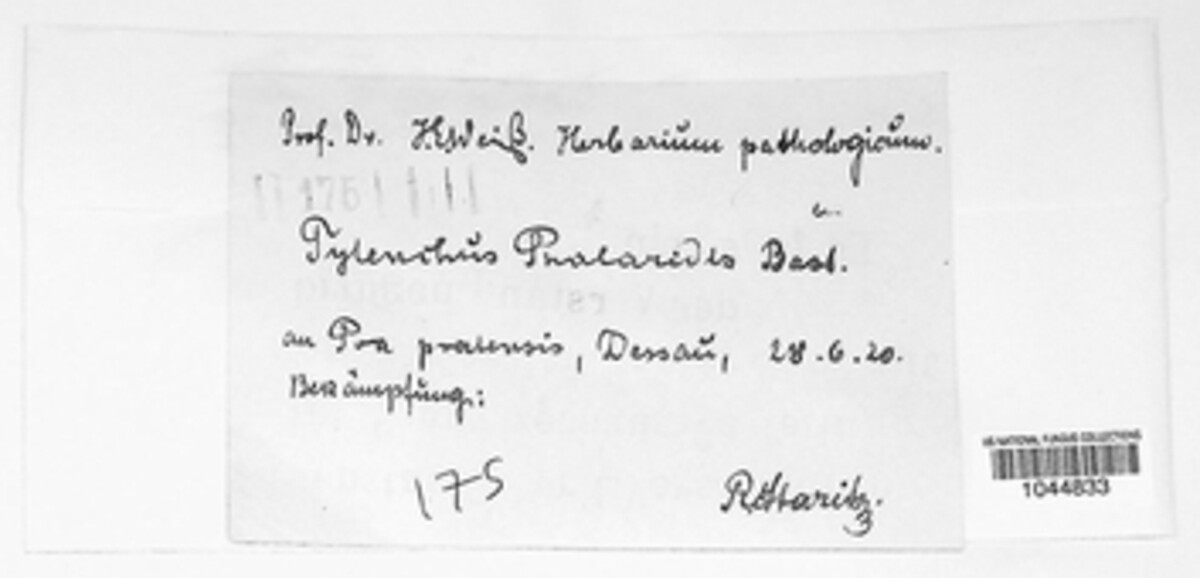 Prof. Dr. H. Weiß. Herbarium pathologicum.
175
Tylenchus Phalaridis Bast.
an Poa pratensis, Dessau, 28.6.20.
Bekämpfung:
175
R. Staritz.
US NATIONAL FUNGUS COLLECTIONS
1044833